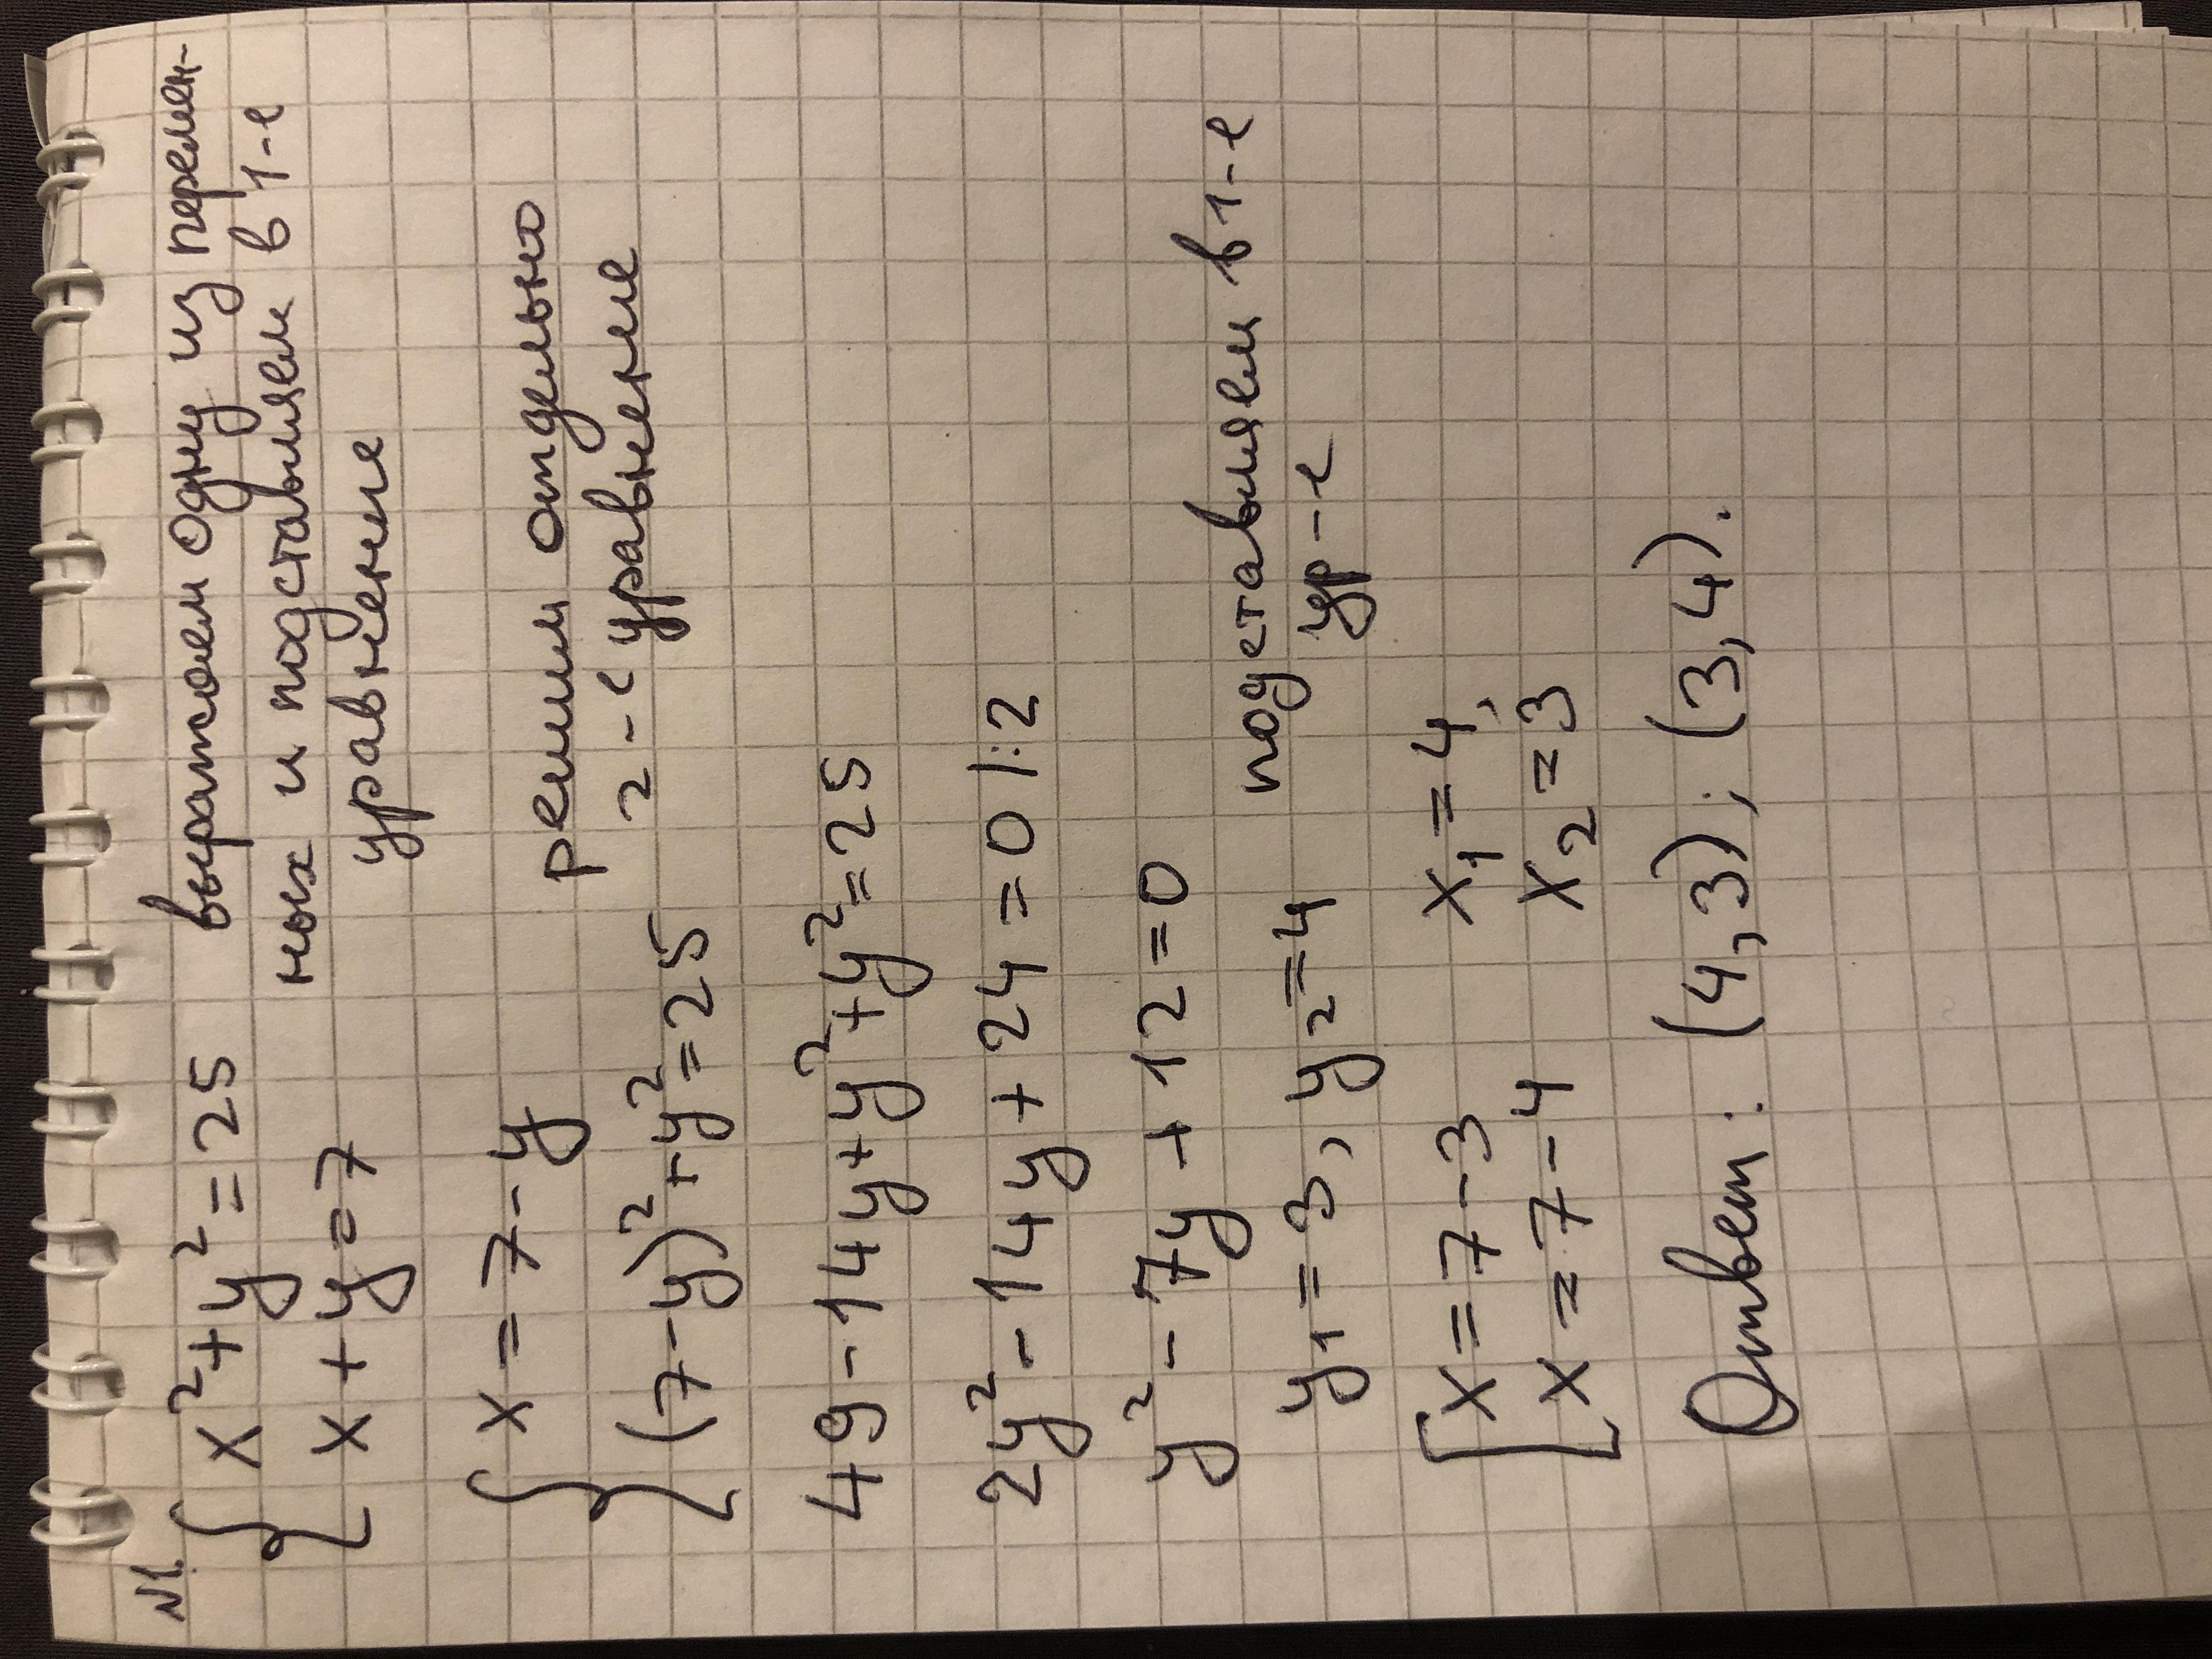 №1.
{ x²+y²=25 выражаем одну из перемен-
x+y=7 ных и подставляем в 1-е
уравнение
{ x=7-y решим отдельно
(7-y)²+y²=25 2-е уравнение
49-14y+y²+y²=25
2y²-14y+24=0 |:2
y²-7y+12=0
y₁=3, y₂=4 подставляем в 1-е
ур-е
[ x=7-3 x₁=4,
x=7-4 x₂=3
Ответ: (4,3); (3,4).